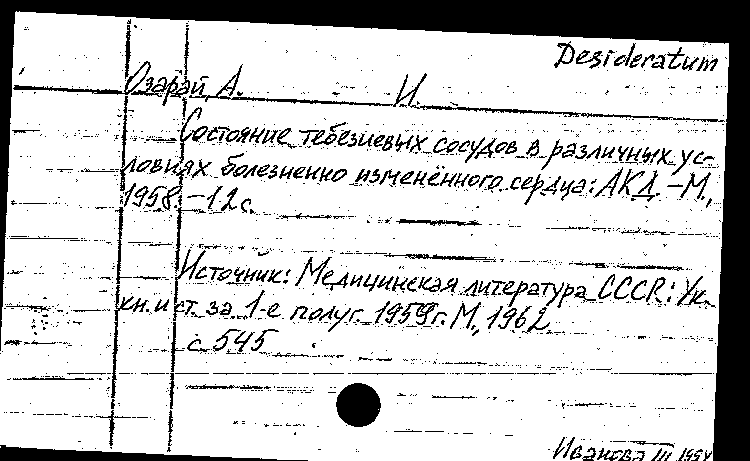 Desideratum
Озарай, А. И.
Состояние тебезиевых сосудов в различных ус-
ловиях болезненно изменённого сердца: АКД. -М.,
1958. -12с.
Источник: Медицинская литература СССР: Ук.
кн. и ст. за 1-е полуг. 1959г. М., 1962.
с. 545
Иванова III